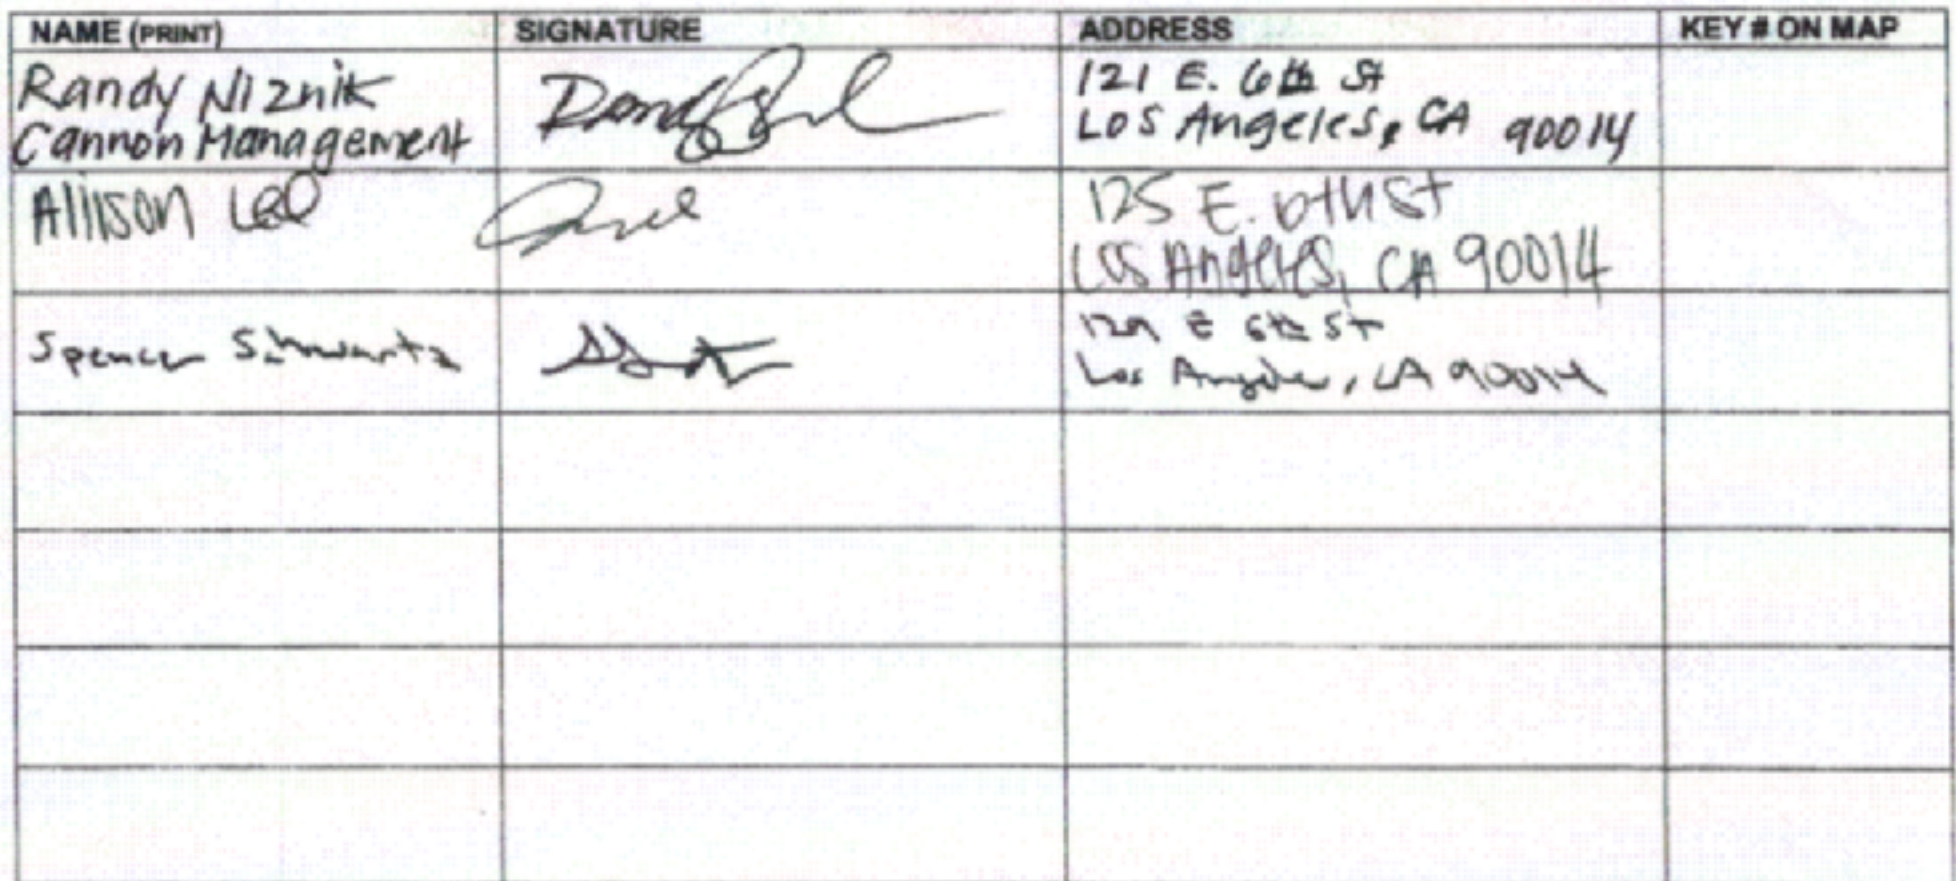 NAME (PRINT) SIGNATURE ADDRESS KEY # ON MAP
Randy Niznik
Cannon Management
121 E. 6th St
Los Angeles, CA 90014
Allison Lee
125 E. 6th St
Los Angeles, CA 90014
Spencer Schwartz
129 E 6th St
Los Angeles, CA 90014